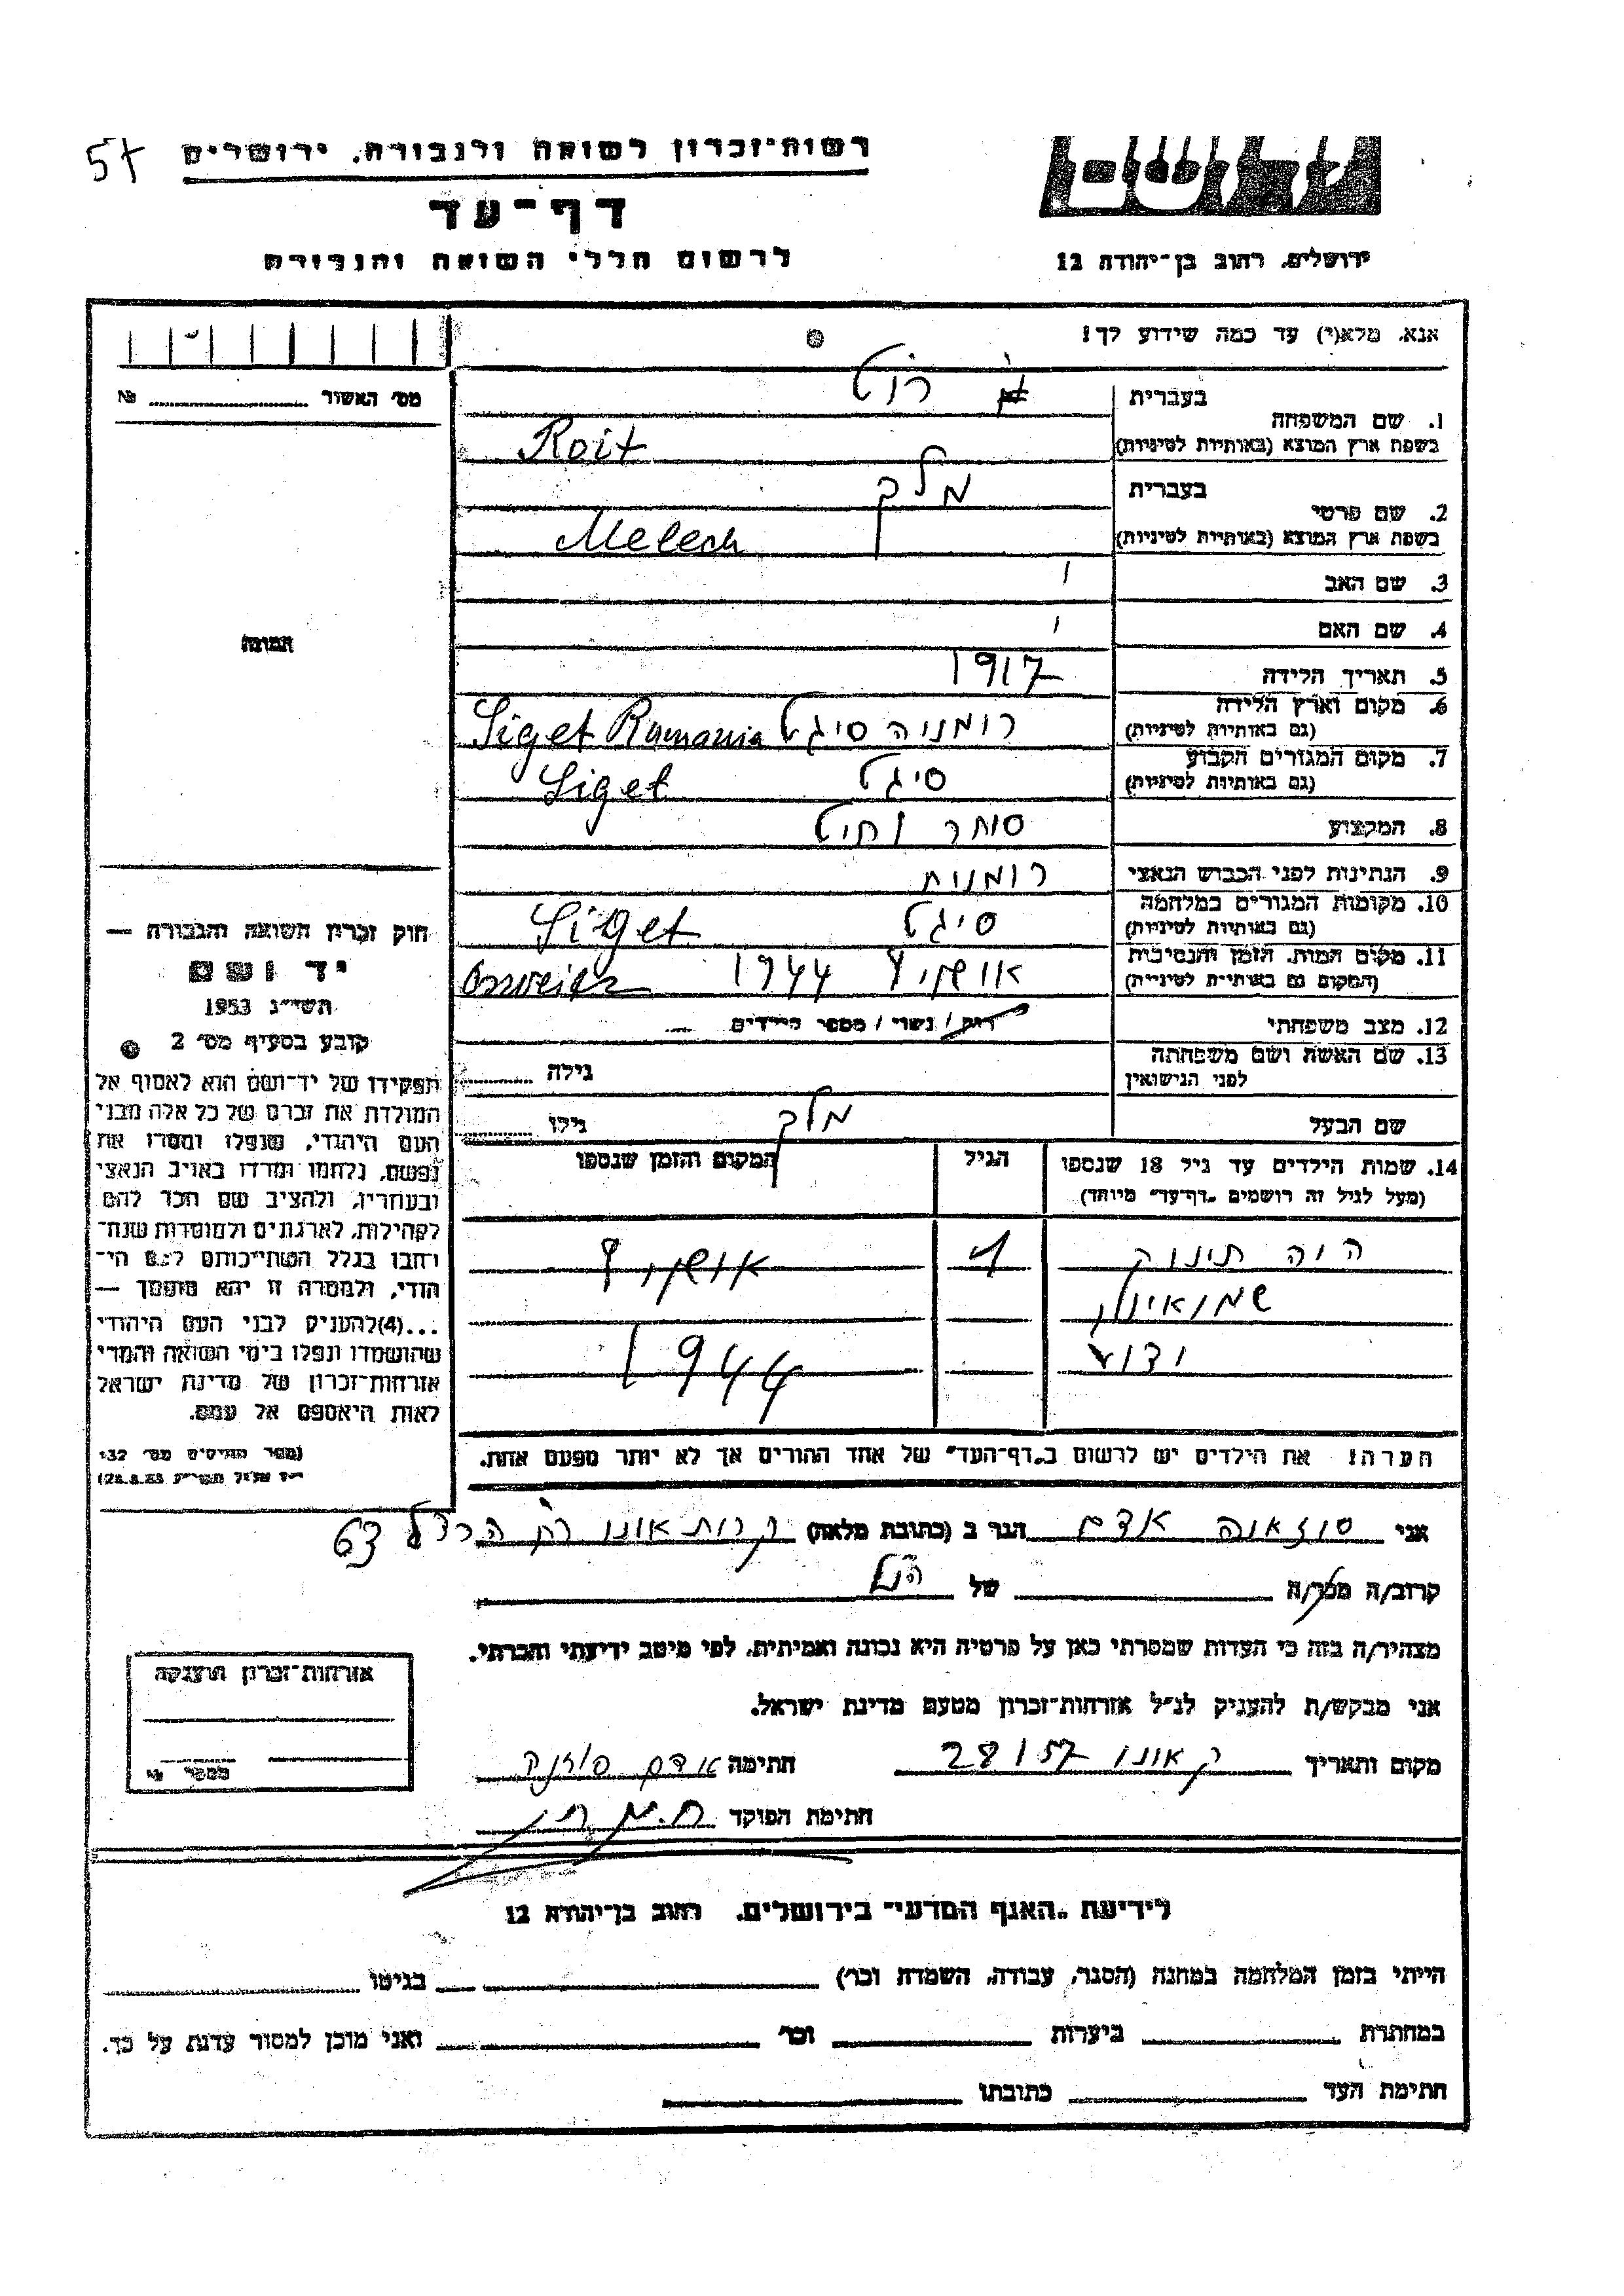 57
רשות־זכרון לשואה ולגבורה, ירושלים
דף־עד
לרשום חללי השואה והגבורה
ירושלים, רחוב בן־יהודה 12
אנא, מלא(י) עד כמה שידוע לך!
מס׳ האשור № 
1. שם המשפחה
בעברית רויט
בשפת ארץ המוצא (באותיות לטיניות) Roit
2. שם פרטי
בעברית מלך
בשפת ארץ המוצא (באותיות לטיניות) Melech
3. שם האב
4. שם האם
5. תאריך הלידה 1917
6. מקום וארץ הלידה (גם באותיות לטיניות) רומניה סיגט Siget Rumania
7. מקום המגורים הקבוע (גם באותיות לטיניות) סיגט Siget
8. המקצוע סוחר
9. הנתינות לפני הכבוש הנאצי רומנית
10. מקומות המגורים במלחמה (גם באותיות לטיניות) סיגט Siget
11. מקום המות, הזמן והנסיבות (המקום גם באותיות לטיניות) אושויץ 1944
12. מצב משפחתי רווק / נשוי / מספר הילדים
13. שם האשה ושם משפחתה לפני הנישואין גילה
שם הבעל מלך גילו
14. שמות הילדים עד גיל 18 שנספו
(מעל לגיל זה רושמים „דף־עד״ מיוחד)
הגיל
המקום והזמן שנספו
היה תינוק
אושויץ
שמו אינו
ידוע
1944
הערה: את הילדים יש לרשום ב„דף־העד״ של אחד ההורים אך לא יותר מפעם אחת.
התמונה
חוק זכרון השואה והגבורה —
יד ושם
תשי״ג 1953
קובע בסעיף מס׳ 2
תפקידו של יד־ושם הוא לאסוף אל
המולדת את זכרם של כל אלה מבני
העם היהודי, שנפלו ומסרו את
נפשם, נלחמו ומרדו באויב הנאצי
ובעוזריו, ולהציב שם וזכר להם
לקהילות, לארגונים ולמוסדות שנח־
רבו בגלל השתייכותם לעם הי־
הודי, ולמטרה זו יהא מוסמך —
...(4) להעניק לבני העם היהודי
שהושמדו ונפלו בימי השואה והמרי
אזרחות־זכרון של מדינת ישראל
לאות היאספם אל עמם.
(ספר החוקים מס׳ 132
אני סוזאנה אדם הגר ב (כתובת מלאה) קרית אונו 63
קרוב/ה מכר/ה של הנ״ל
מצהיר/ה בזה כי העדות שמסרתי כאן על פרטיה היא נכונה ואמיתית, לפי מיטב ידיעתי והכרתי.
אני מבקש/ת להעניק לנ״ל אזרחות־זכרון מטעם מדינת ישראל.
מקום ותאריך ק אונו חתימה אדם סוזנה
חתימת הפוקד
אזרחות־זכרון הוענקה
מספר
לידיעת „האגף המדעי״ בירושלים, רחוב בן־יהודה 12
הייתי בזמן המלחמה במחנה (הסגר, עבודה, השמדה וכו׳) בגיטו
במחתרת ביערות וכו׳ ואני מוכן למסור עדות על כך.
חתימת העד כתובתו